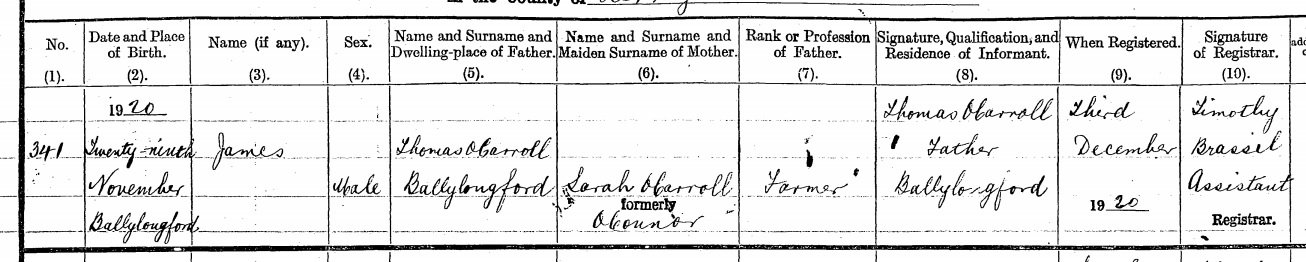 No.
(1).
Date and Place
of Birth.
(2).
Name (if any).
(3).
Sex.
(4).
Name and Surname and
Dwelling-place of Father.
(5).
Name and Surname and
Maiden Surname of Mother.
(6).
Rank or Profession
of Father.
(7).
Signature, Qualification, and
Residence of Informant.
(8).
When Registered.
(9).
Signature
of Registrar.
(10).
341
1920
Twenty-ninth
November
Ballylongford
James
Male
Thomas O'Carroll
Ballylongford
Sarah O'Carroll
formerly
O'Connor
Farmer
Thomas O'Carroll
Father
Ballylongford
Third
December
1920
Timothy
Brassil
Assistant
Registrar.